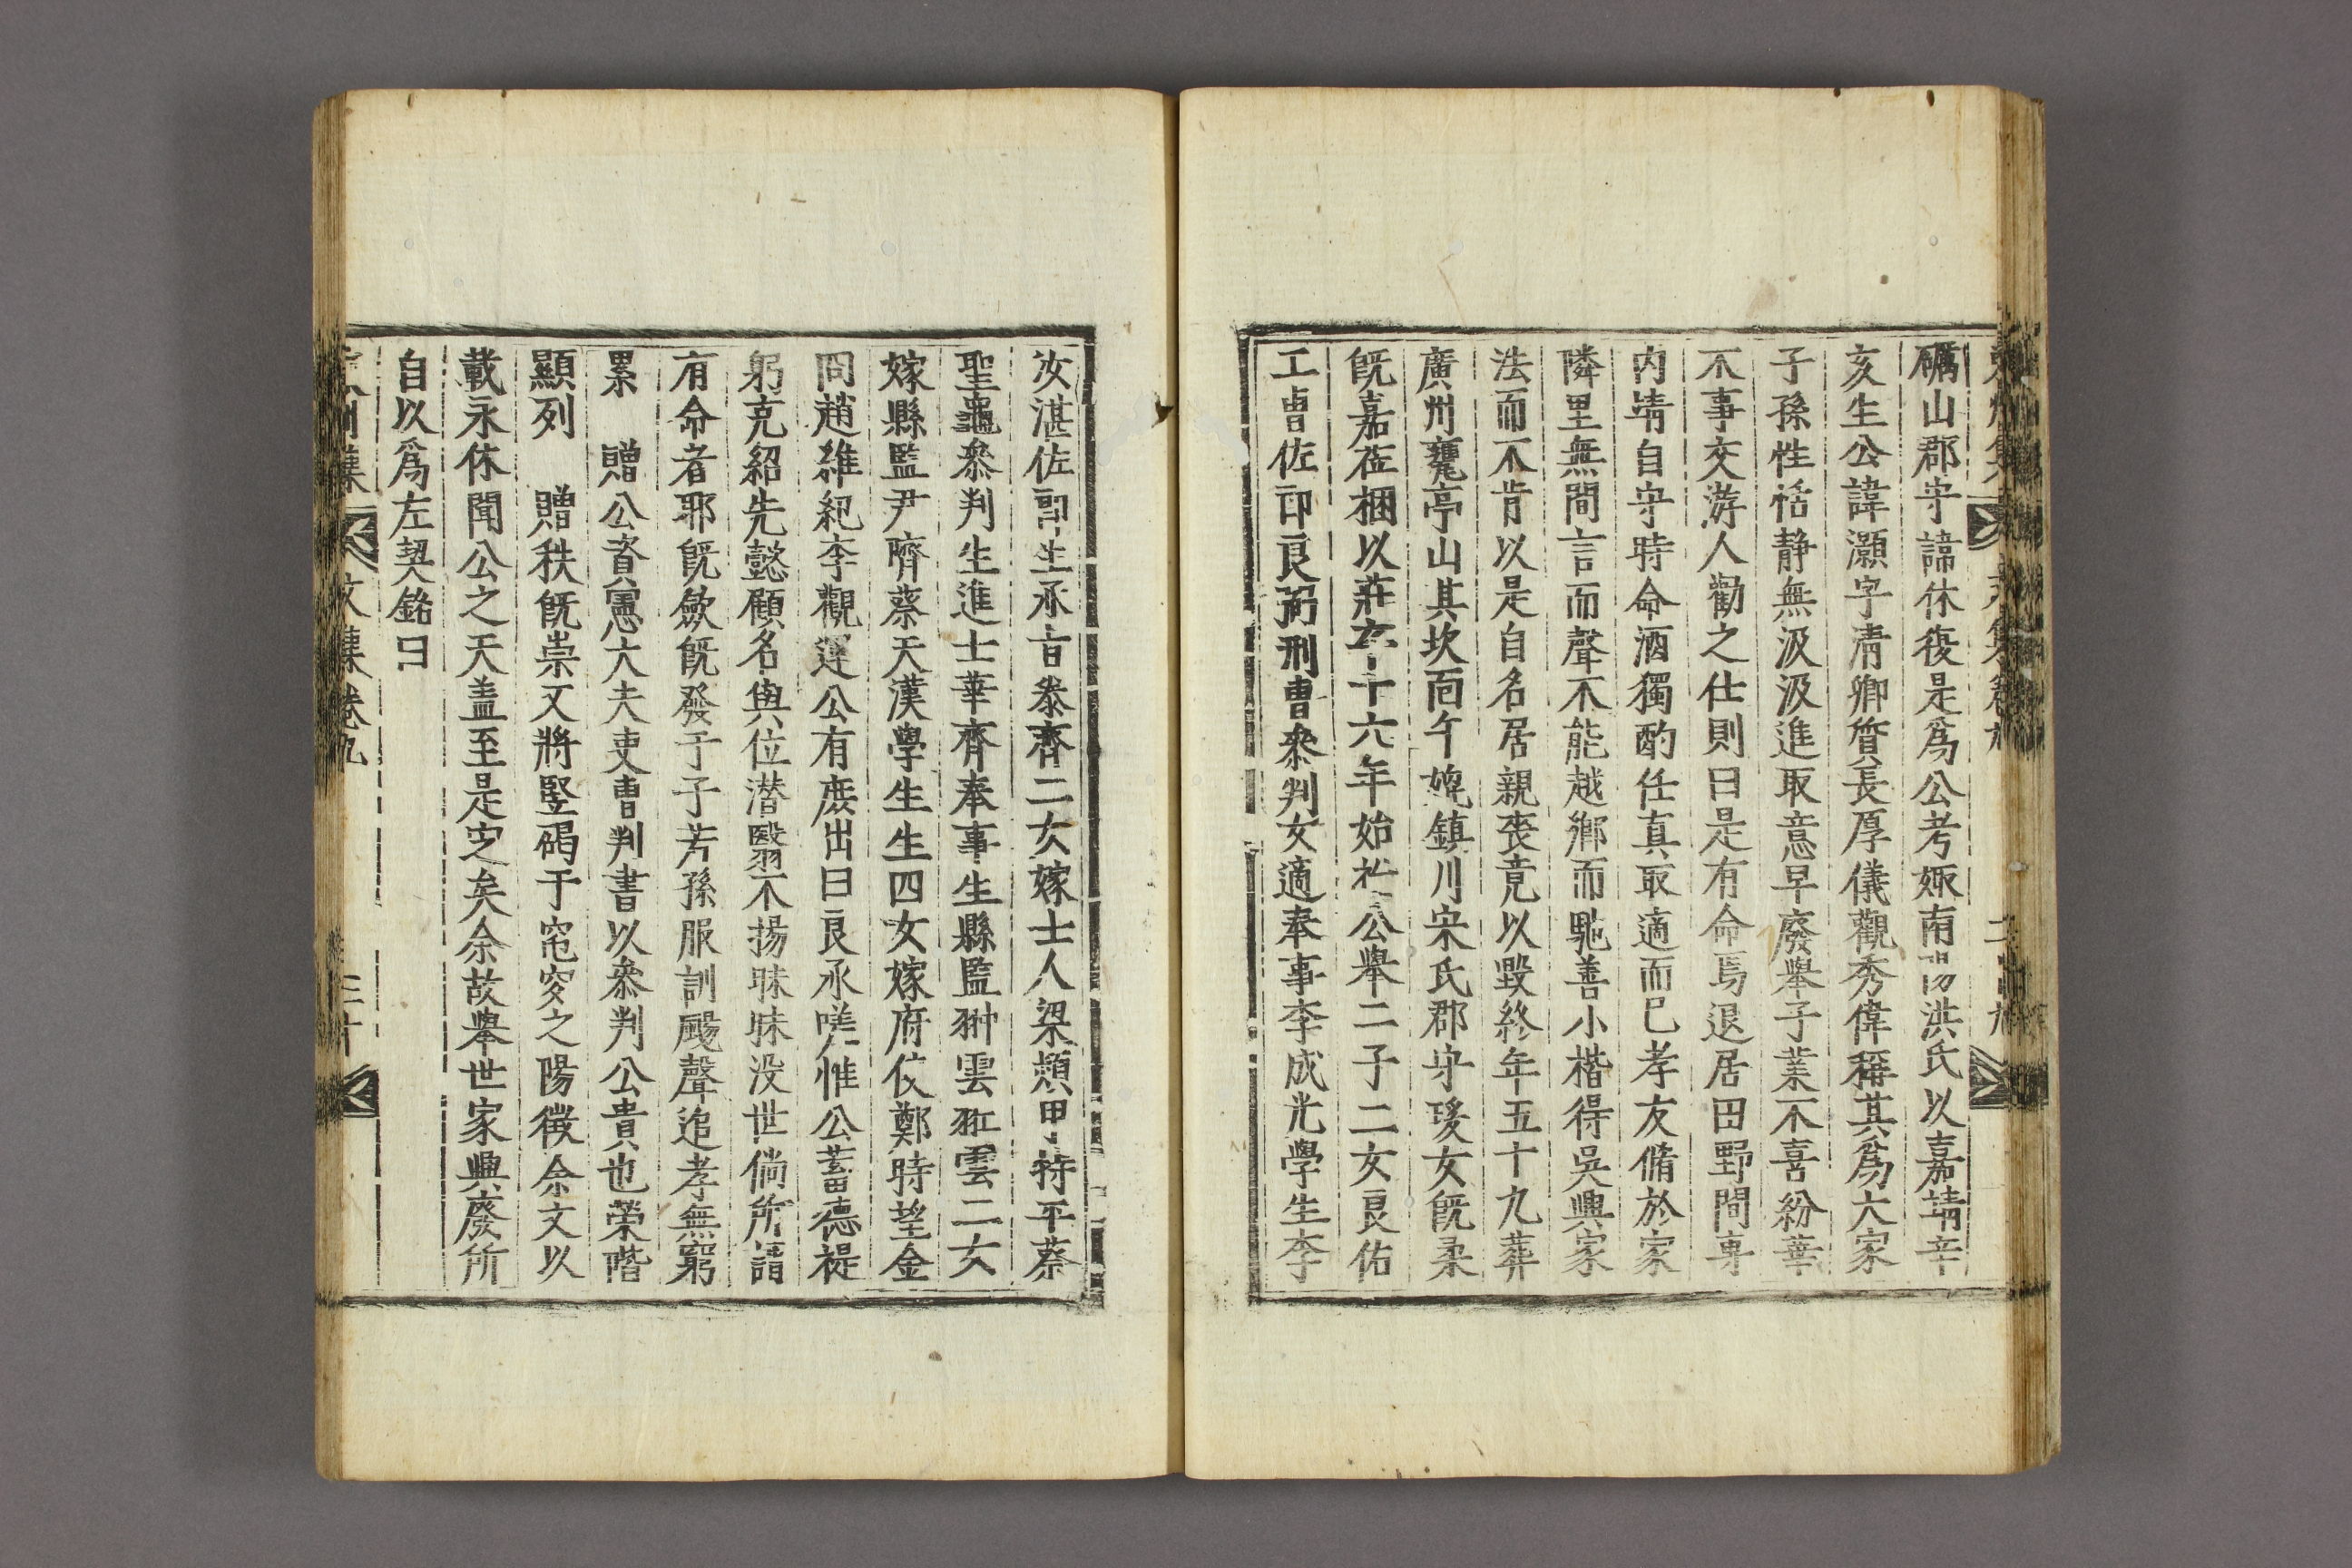 礪山郡守諱休復是爲公考娵南陽洪氏以嘉靖辛
亥生公諱灝字淸卿質長厚儀觀秀偉稱其爲大家
子孫性恬静無汲汲進取意早廢擧子業不喜紛華
不事交游人勸之仕則曰是有命焉退居田野間專
内靖自守時命酒獨酌任真取適而已孝友脩於家
隣里無間言而聲不能越鄕而馳善小楷得吳興家
法而不肯以是自名居親喪竟以毀終年五十九葬
廣州甕亭山其坎面午婏鎮川宋氏郡守瑗女旣柔
旣嘉莅梱以莊六十六年始祔公擧二子二女良佑
工曹佐郎良弼刑曹叅判女適奉事李成光學生李
汝湛佐郎生承吉叅齊二女嫁士人梁頻甲持平蔡
聖龜叅判生進士華齊奉事生縣監翀雲羾雲二女
嫁縣監尹㿉蔡天漢學生生四女嫁府使鄭時望金
問趙維紀李觀運公有庶出曰良承嗟惟公蓄德褆
躬克紹先懿顧名與位潜翳不揚昧昧没世倘所謂
有命者耶旣斂旣發于子若孫服訓颺聲追孝無窮
累　贈公資憲大夫吏曹判書以叅判公貴也榮階
顯列　贈秩旣崇又將竪碣于窀穸之陽徵余文以
載永休聞公之天盖至是定矣余故擧世家興廢所
自以爲左契銘曰
文集卷九
三十